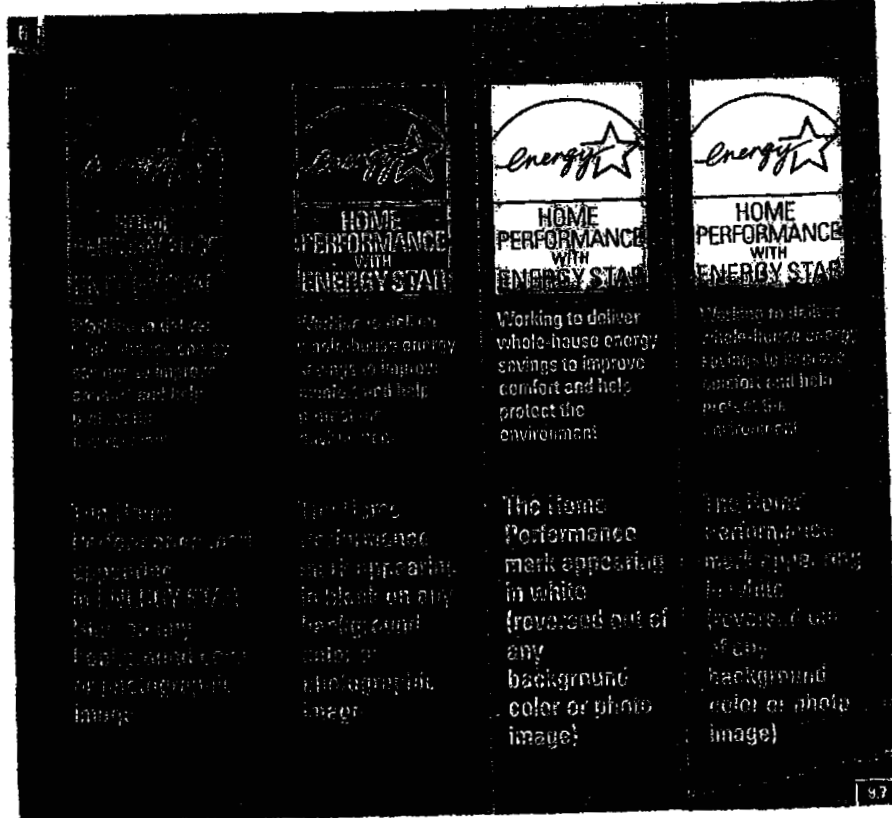 energy
HOME
PERFORMANCE
WITH
ENERGY STAR
Working to deliver
whole-house energy
savings to improve
comfort and help
protect the
The Home
appearing
in ENERGY STAR
background color
or photographic
image
energy
HOME
PERFORMANCE
WITH
ENERGY STAR
Working to deliver
whole-house energy
savings to improve
comfort and help
protect the
environment
The Home
Performance
mark appearing
in black on any
background
color or
photographic
image
energy
HOME
PERFORMANCE
WITH
ENERGY STAR
Working to deliver
whole-house energy
savings to improve
comfort and help
protect the
environment
The Home
Performance
mark appearing
in white
(reversed out of
any
background
color or photo
image)
energy
HOME
PERFORMANCE
WITH
ENERGY STAR
Working to deliver
whole-house energy
savings to improve
comfort and help
protect the
environment
The Home
Performance
mark appearing
in white
(reversed out
of any
background
color or photo
image)
9.7